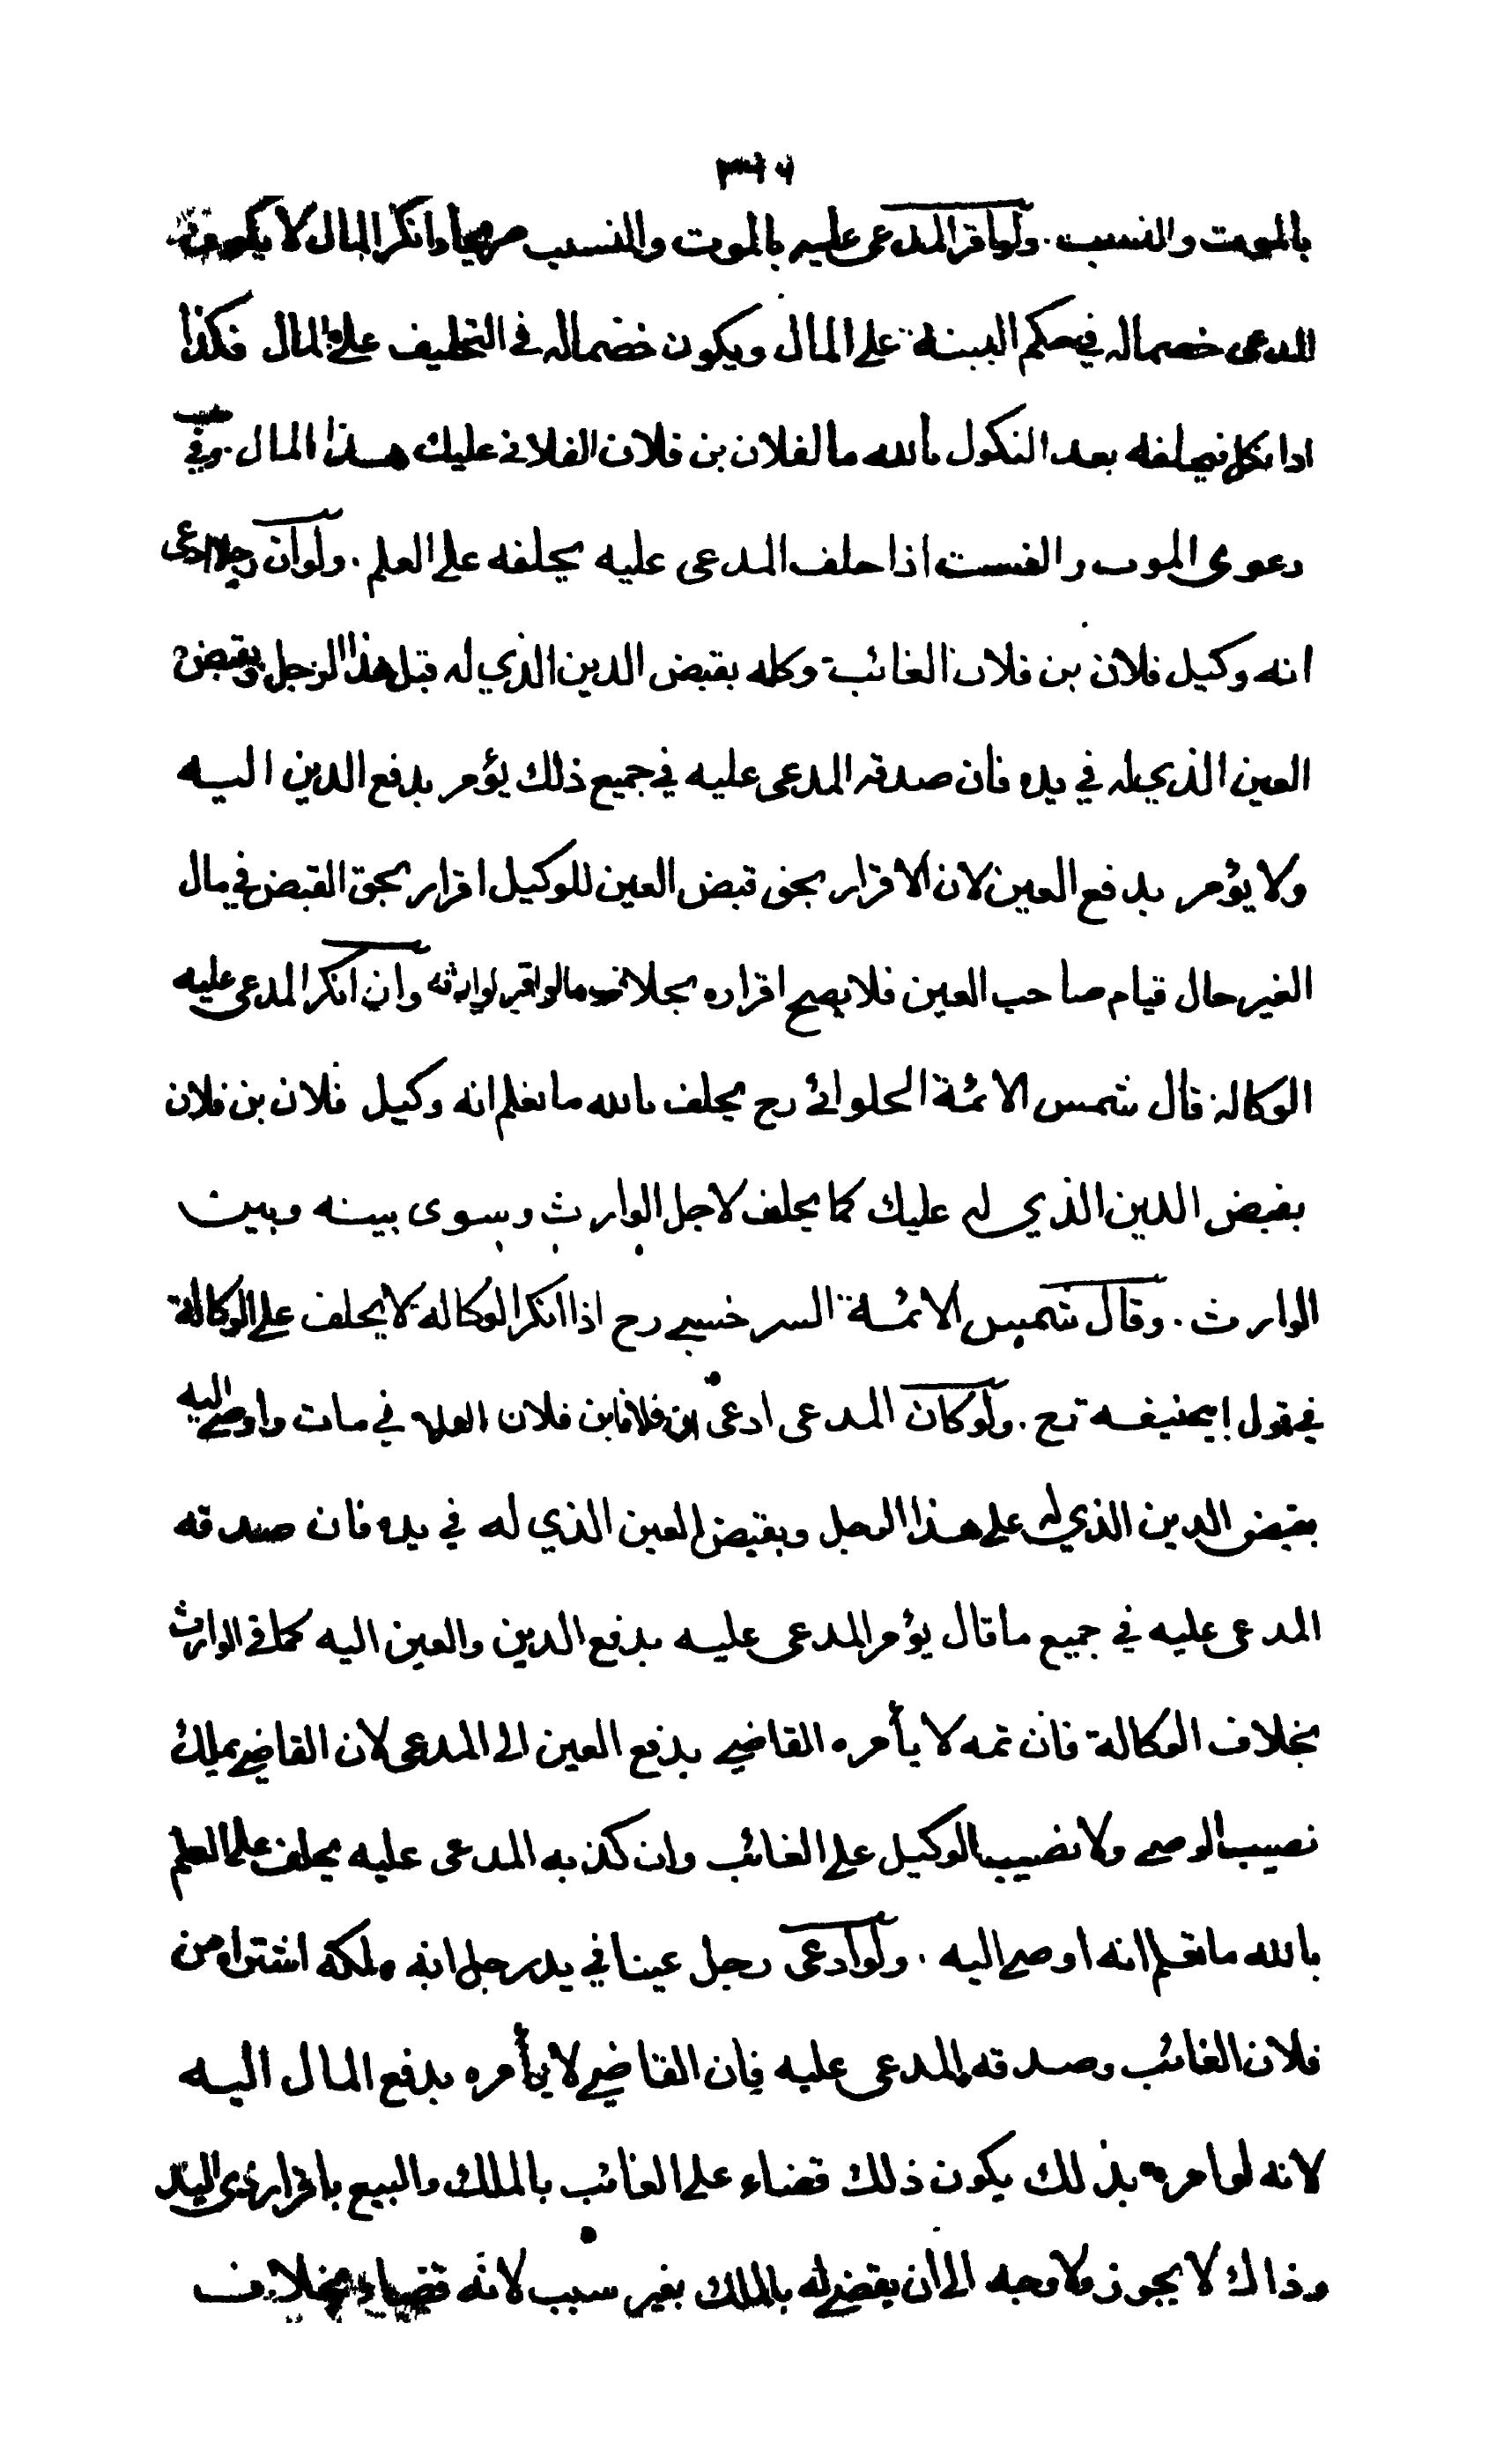 بالموت والنسب . ولو اقر المدعى عليه بالموت والنسب صريحا وانكر المال لا يكون
المدعى خصما له في حكم البينة على المال ويكون خصما له في التحليف على المال فكذا
اذا نكل فيحلفه بعد النكول بالله ما لفلان بن فلان الفلاني عليك هذا المال . وفي
دعوى الموت والنسب اذا حلف المدعى عليه يحلفه على العلم . ولو ان رجلا ادعى
انه وكيل فلان بن فلان الغائب وكله بقبض الدين الذي له قبل هذا الرجل وبقبض
العين الذي له في يده فان صدقه المدعى عليه في جميع ذلك يؤمر بدفع الدين اليه
ولا يؤمر بدفع العين لان الاقرار بحق قبض العين للوكيل اقرار بحق القبض في مال
الغير حال قيام صاحب العين فلا يصح اقراره بخلاف ما لو اقر لوارثه وان انكر المدعى عليه
الوكالة قال شمس الائمة الحلوائي رح يحلف بالله ما تعلم انه وكيل فلان بن فلان
بقبض الدين الذي له عليك كما يحلف لاجل الوارث وسوى بينه وبين
الوارث . وقال شمس الائمة السرخسي رح اذا انكر الوكالة لا يحلف على الوكالة
في قول ابيحنيفه رح . ولو كان المدعى ادعى ان فلانا بن فلان الفلاني مات واوصى اليه
بقبض الدين الذي له على هذا الرجل وبقبض العين الذي له في يده فان صدقه
المدعى عليه في جميع ما قال يؤمر المدعى عليه بدفع الدين والعين اليه كما في الوارث
بخلاف الوكالة فان ثمه لا يأمره القاضي بدفع العين الى المدعى لان القاضي يملك
نصيب الوصي ولا نصيب الوكيل على الغائب وان كذبه المدعى عليه يحلف على العلم
بالله ما تعلم انه اوصى اليه . ولو ادعى رجل عينا في يد رجل انه ملكه اشتراه من
فلان الغائب وصدقه المدعى عليه فان القاضي لا يأمره بدفع المال اليه
لانه لو امره بذلك يكون ذلك قضاء على الغائب بالملك والبيع باقرار ذي اليد
وذاك لا يجوز ولا وجه الى ان يقضي له بالملك بغير سبب لانه قضاء بخلاف